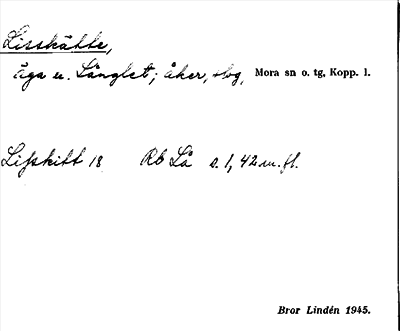 Lisskätte,
äga u. Långlet; åker, skog, Mora sn o. tg, Kopp. l.
Lisskitt 18 Rb Lå s. 1, 42 m. fl.
Bror Lindén 1945.